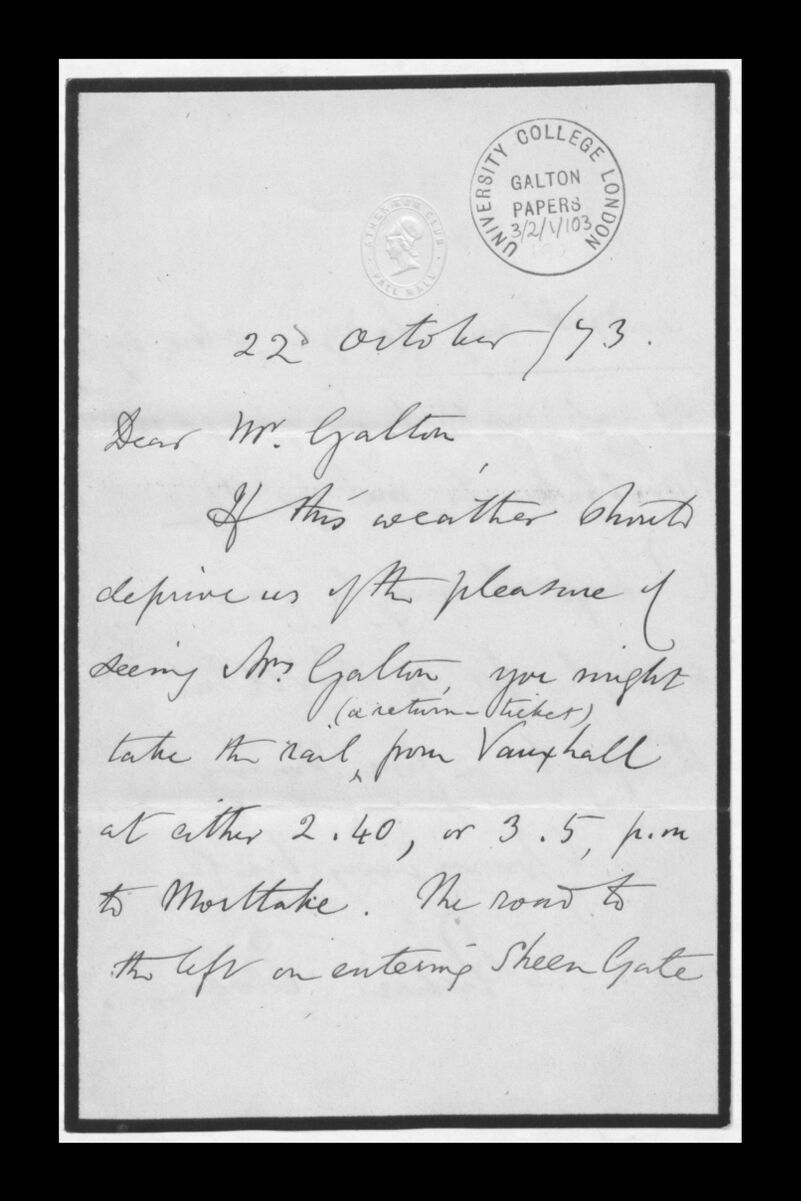 UNIVERSITY COLLEGE LONDON
GALTON
PAPERS
3/2/1/103
ATHENÆUM CLUB
PALL MALL
22d October /73.
Dear Mr. Galton,
If this weather should
deprive us of the pleasure of
seeing Mrs Galton, you might
(a return-ticket)
take the rail ‸ from Vauxhall
at either 2.40, or 3.5, p.m
to Mortlake. The road to
the left on entering Sheen Gate